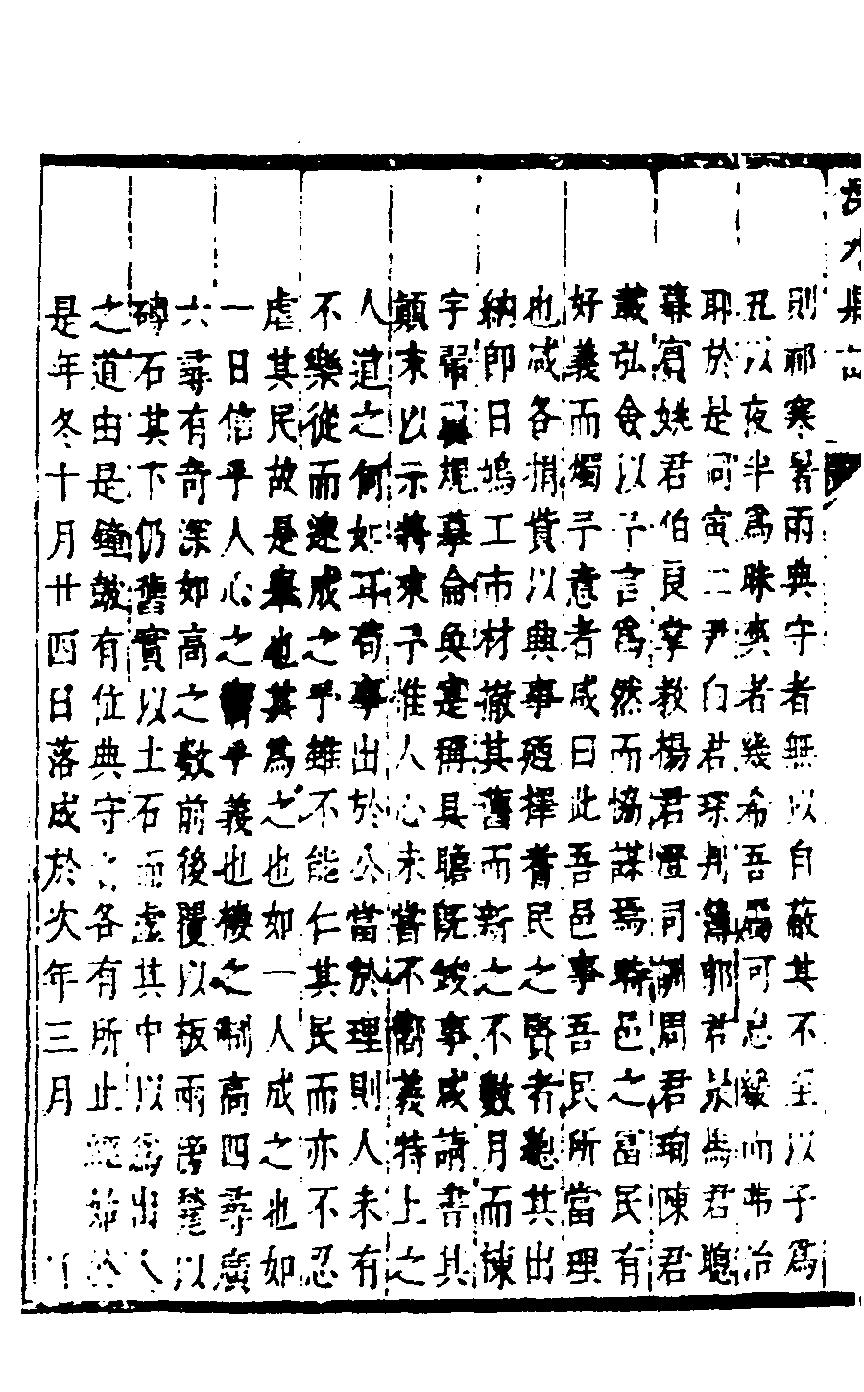 則祁寒暑雨典守者無以自蔽其不至以子爲
丑以夜半爲昧爽者幾希吾可忽緩而弗治
耶於是同寅二尹白君琛判簿郭君馬君聰
幕賓姚君伯良掌教楊君澄司訓周君珣陳君
叢弘僉以予言爲然而協謀焉時邑之富民有
好義而燭予意者咸曰此吾邑事吾民所當理
也咸各捐貲以典事廼擇耆民之賢者聽其出
納即日鳩工市材撤其舊而新之不數月而棟
宇帟規摹侖奐寔稱具瞻既竣事咸請書其
顛末以示將來予惟人心未甞不嚮義特上之
人道之何如耳苟事出於公當於理則人未有
不樂從而遽成之乎雖不能仁其民而亦不忍
虐其民故是舉也其爲之也如一人成之也如
一日信乎人心之嚮乎義也樓之制高四尋廣
六尋有奇深如高之數前後覆以板兩旁甃以
磚石其下仍舊實以土石而虛其中以爲出入
之道由是鐘皷有位典守者各有所止經始於
是年冬十月廿四日落成於次年三月